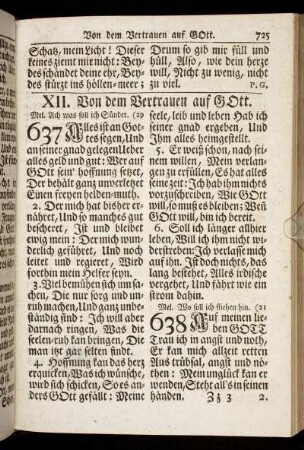 Von dem Vertrauen auf GOtt. 725
Schatz, mein Licht! Dieser
keines ziemt mir nicht: Bey-
des schändet deine ehr, Bey-
des stürzt ins höllen-meer:
Drum so gib mir füll und
hüll, Also, wie dein herze
will, Nicht zu wenig, nicht
zu viel. P. G.
XII. Von dem Vertrauen auf GOtt.
Mel. Ach was soll ich Sünder. (29
637 Alles ist an Got-
tes segen, Und
an seiner gnad gelegen Ueber
alles geld und gut: Wer auf
GOtt sein' hoffnung setzet,
Der behält ganz unverletzet
Einen freyen helden-muth.
2. Der mich hat bisher er-
nähret, Und so manches gut
bescheret, Ist und bleibet
ewig mein: Der mich wun-
derlich geführet, Und noch
leitet und regieret, Wird
forthin mein Helfer seyn.
3. Viel bemühen sich um sa-
chen, Die nur sorg und un-
ruh machen, Und ganz unbe-
ständig sind: Ich will aber
darnach ringen, Was die
seelen-ruh kan bringen, Die
man itzt gar selten findt.
4. Hoffnung kan das herz
erquicken, Was ich wünsche,
wird sich schicken, So es an-
ders GOtt gefällt: Meine
seele, leib und leben Hab ich
seiner gnad ergeben, Und
Ihm alles heimgestellt.
5. Er weiß schon, nach sei-
nem willen, Mein verlan-
gen zu erfüllen, Es hat alles
seine zeit: Ich hab ihm nichts
vorzuschreiben, Wie GOtt
will, so muß es bleiben: Wañ
GOtt will, bin ich bereit.
6. Soll ich länger allhier
leben, Will ich ihm nicht wi-
derstreben: Ich verlasse mich
auf ihn. Ist doch nichts, das
lang bestehet, Alles irdische
vergehet, Und fährt wie ein
strom dahin.
Mel. Wo soll ich fliehen hin. (21
638 Auf meinen lie-
ben GOTT
Trau ich in angst und noth,
Er kan mich allzeit retten
Aus trübsal, angst und nö-
then: Mein unglück kan er
wenden, Steht all's in seinen
händen. Zz 3 2.